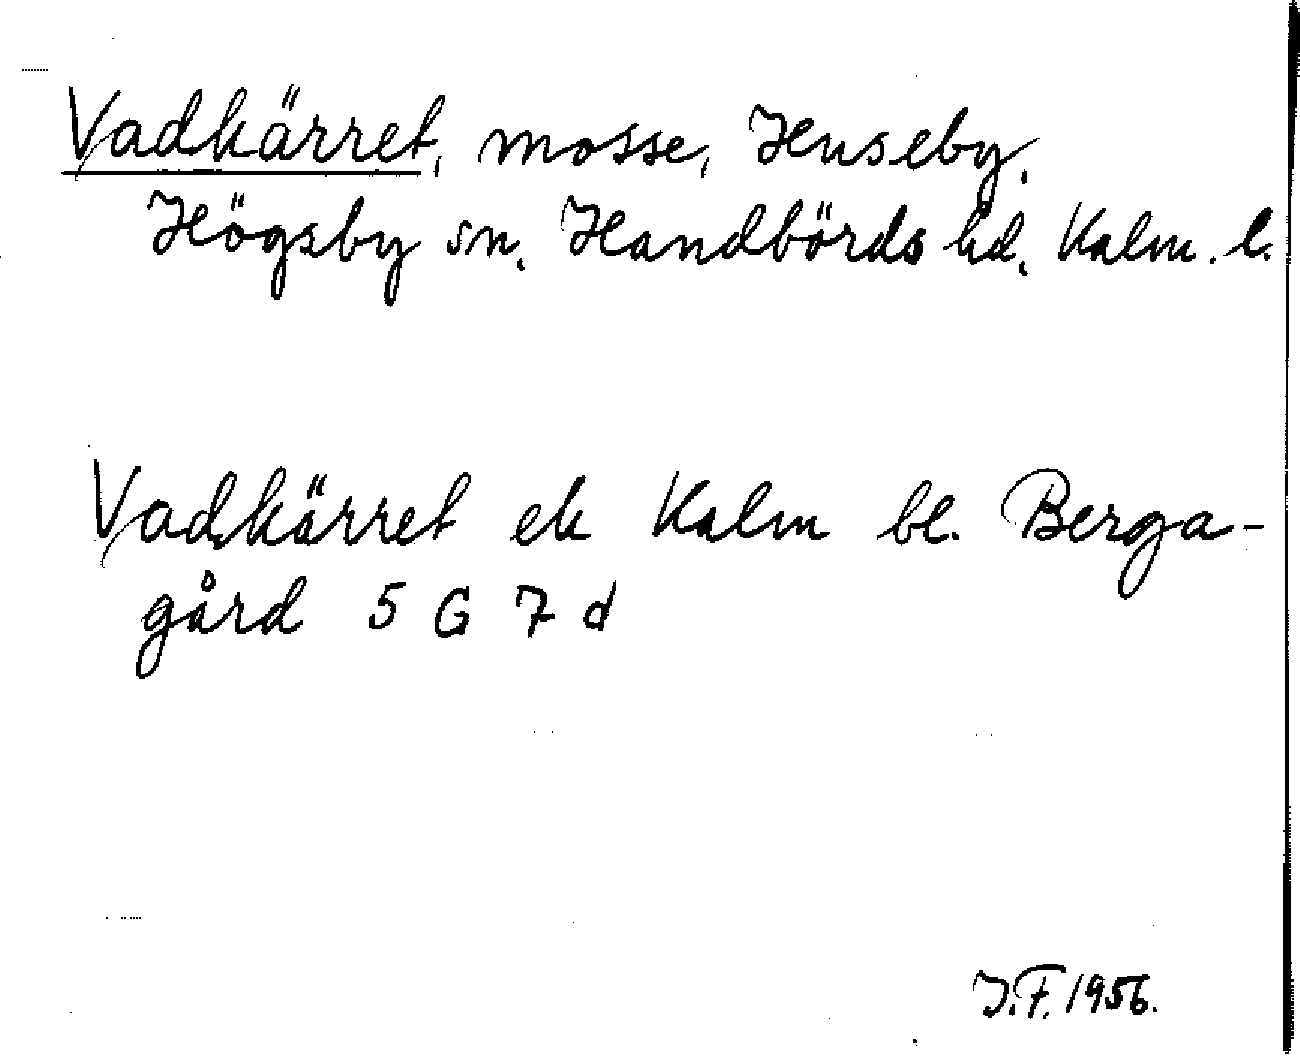 Vadkärret, mosse, Huseby,
Högsby sn, Handbörds hd, Kalm. l.
Vadkärret ek Kalm bl. Berga-
gård 5 G 7 d
J.F. 1956.